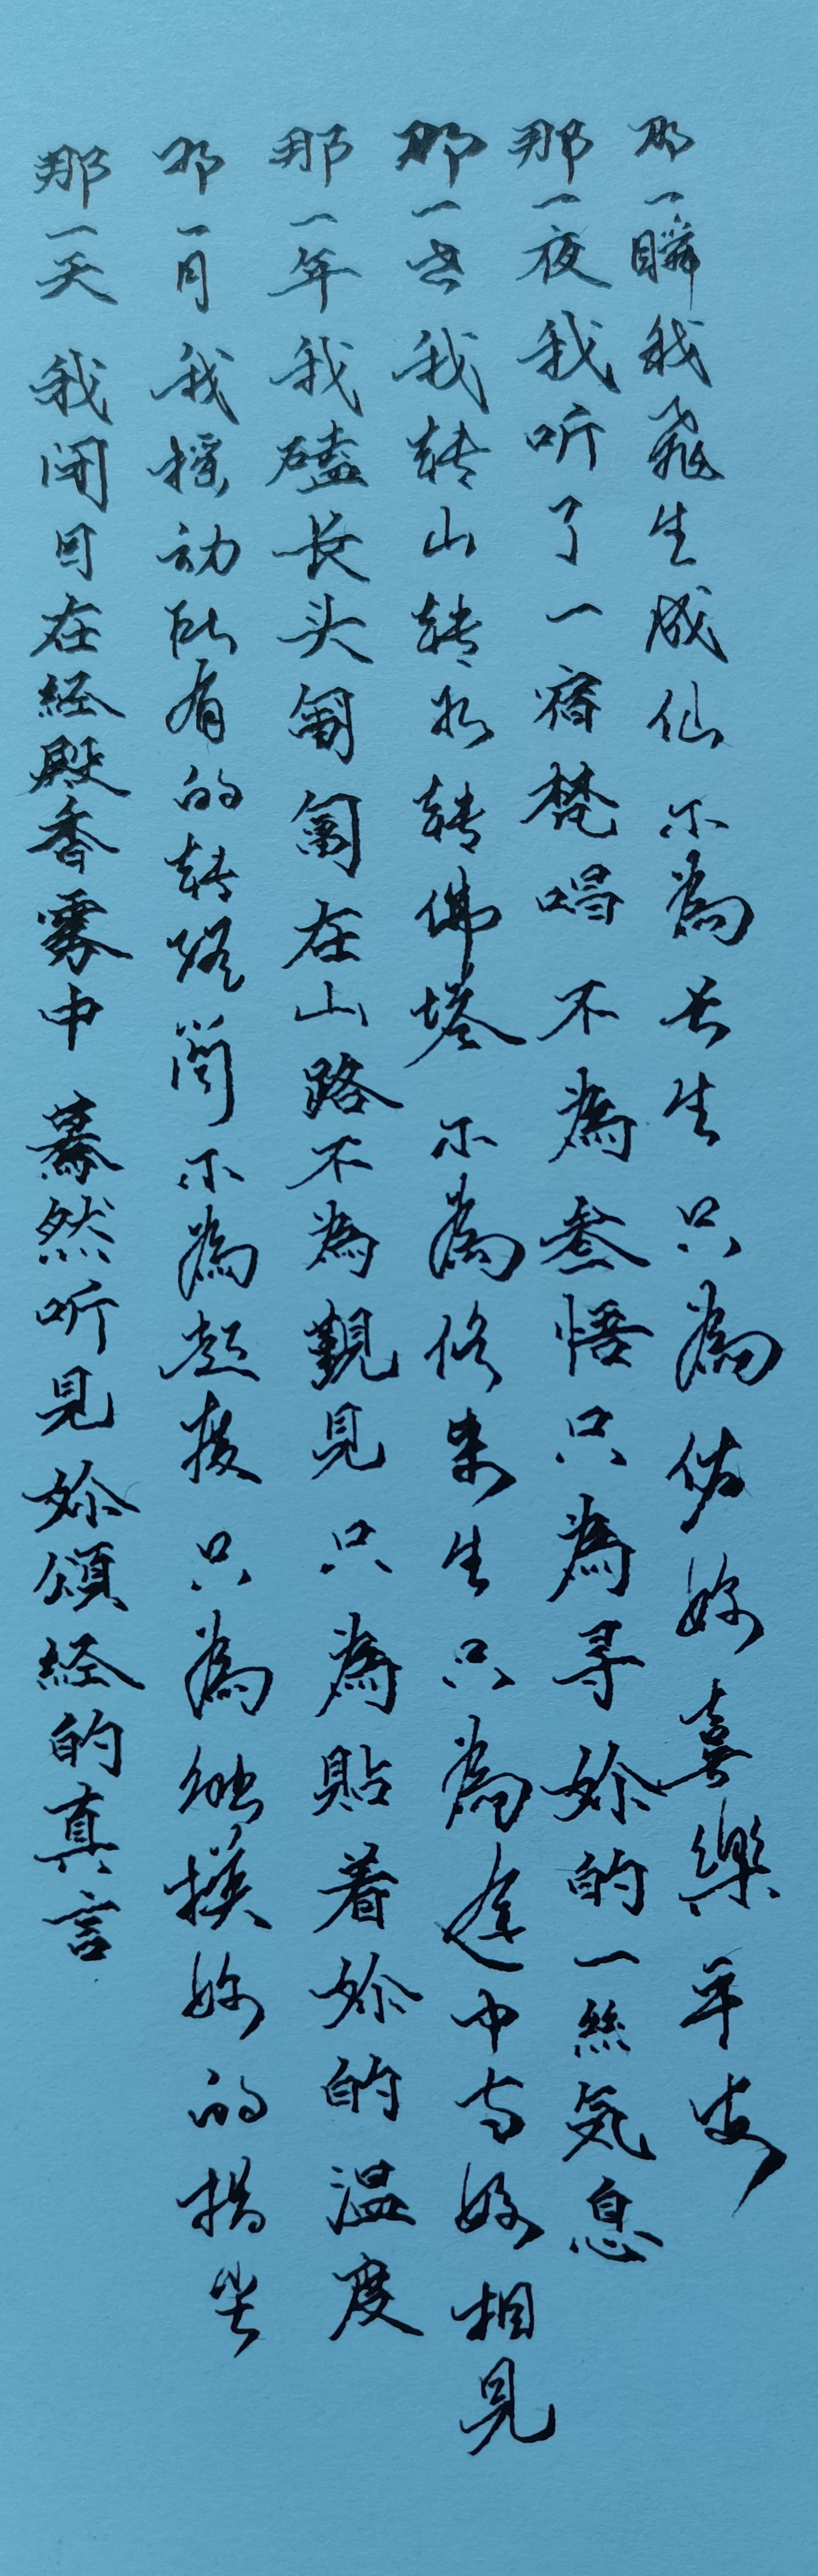 那一天 我闭目在経殿香霧中 驀然听見妳頌経的真言
那一月我摇动所有的转経筒不為超度 只為触摸妳的指尖
那一年我磕长头匍匐在山路不為覲見只為貼着妳的温度
那一世我转山转水转佛塔 不為修来生只為途中与妳相見
那一夜我听了一宿梵唱 不為叁悟只為寻妳的一絲気息
那一瞬我飛生成仙 不為长生 只為佑妳喜樂平安